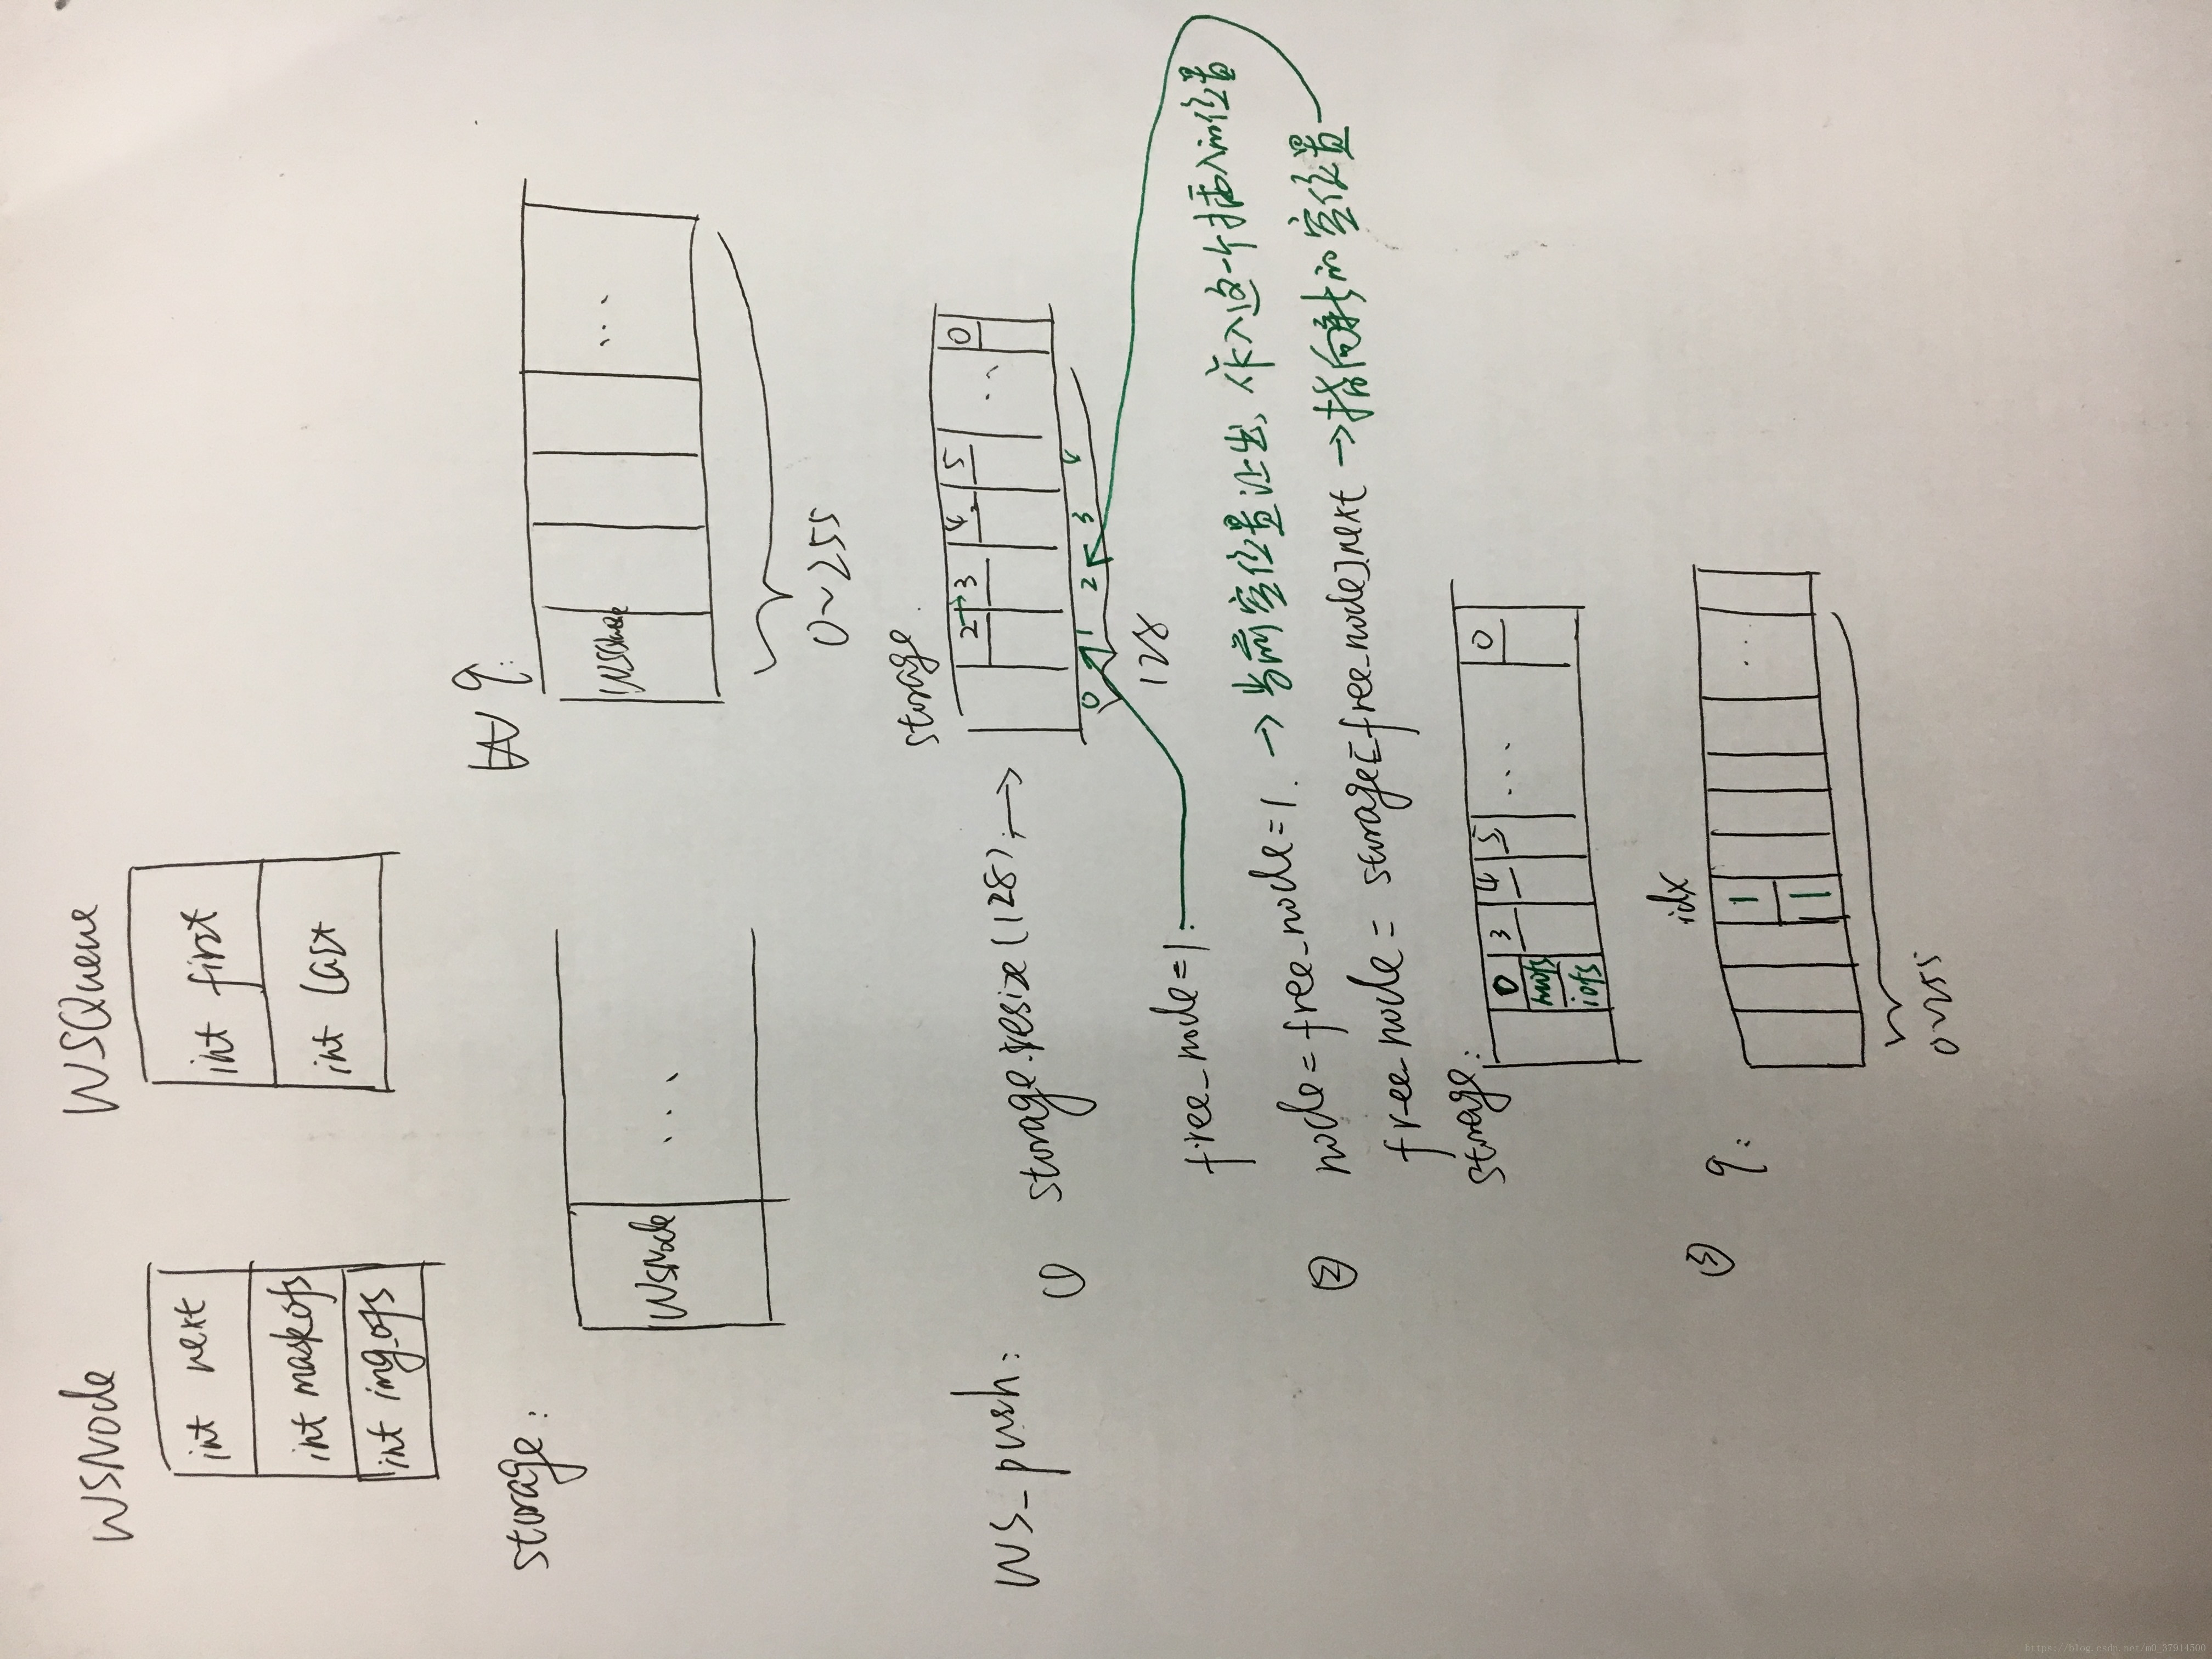 WSNode
int next
int maskofs
int img_ofs
WSQueue
int first
int last
storage:
WSNode
...
q:
WSQueue
...
0~255
WS_push:
① storage.resize(128); →
storage
2→3 4 5 ... 0
0 1 2 3 4
128
free_node=1;
② node=free_node=1. → 当前空位置让出,作入这一个插入的位置
free_node= storage[free_node].next → 指向新的空位置
storage:
0 3 4 5 ... 0
mofs
iofs
③ q:
idx
1
1
...
0~255
https://blog.csdn.net/m0_37914500